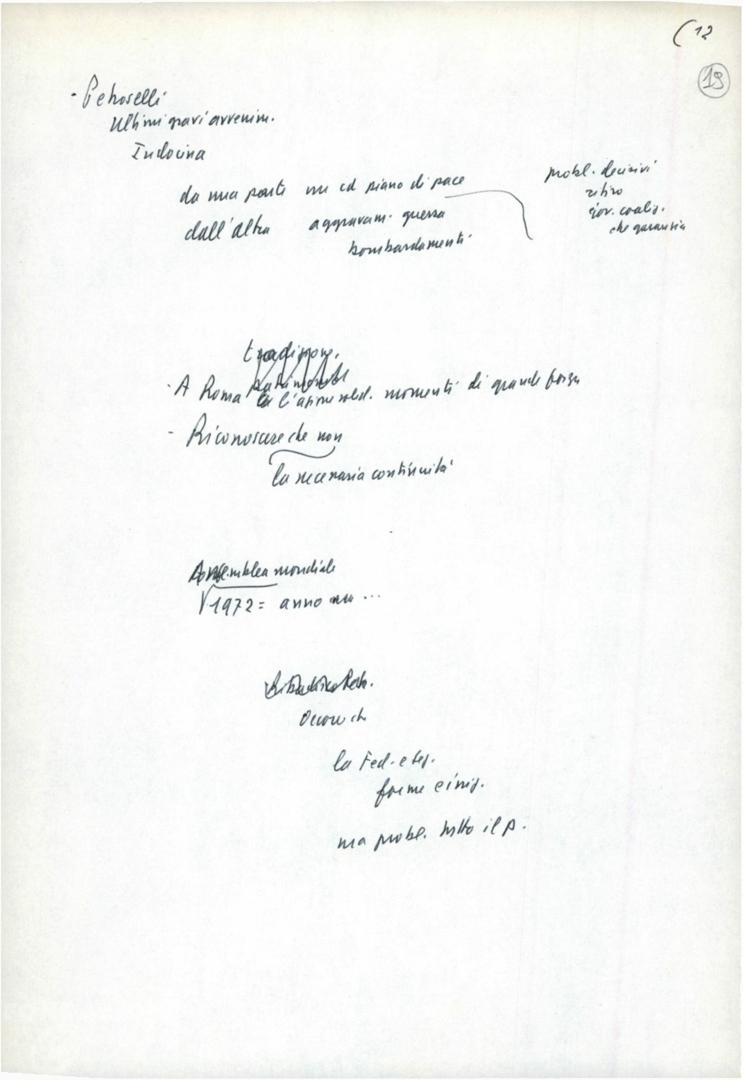 (12
19
- Petroselli
Ultimi gravi avvenim.
Indocina
da una parte un cd piano di pace
dall'altra aggravam. guerra
bombardamenti
probl. decisivi
ritiro
gov. coaliz.
che garantisca
tradizione,
- A Roma l'azione solid. momenti di grande forza
- Riconoscere che non
la necessaria continuità
Assemblea mondiale
1972 = anno ...
Occorre ch
la Fed. e
forme e iniz.
ma probl. tutto il p.